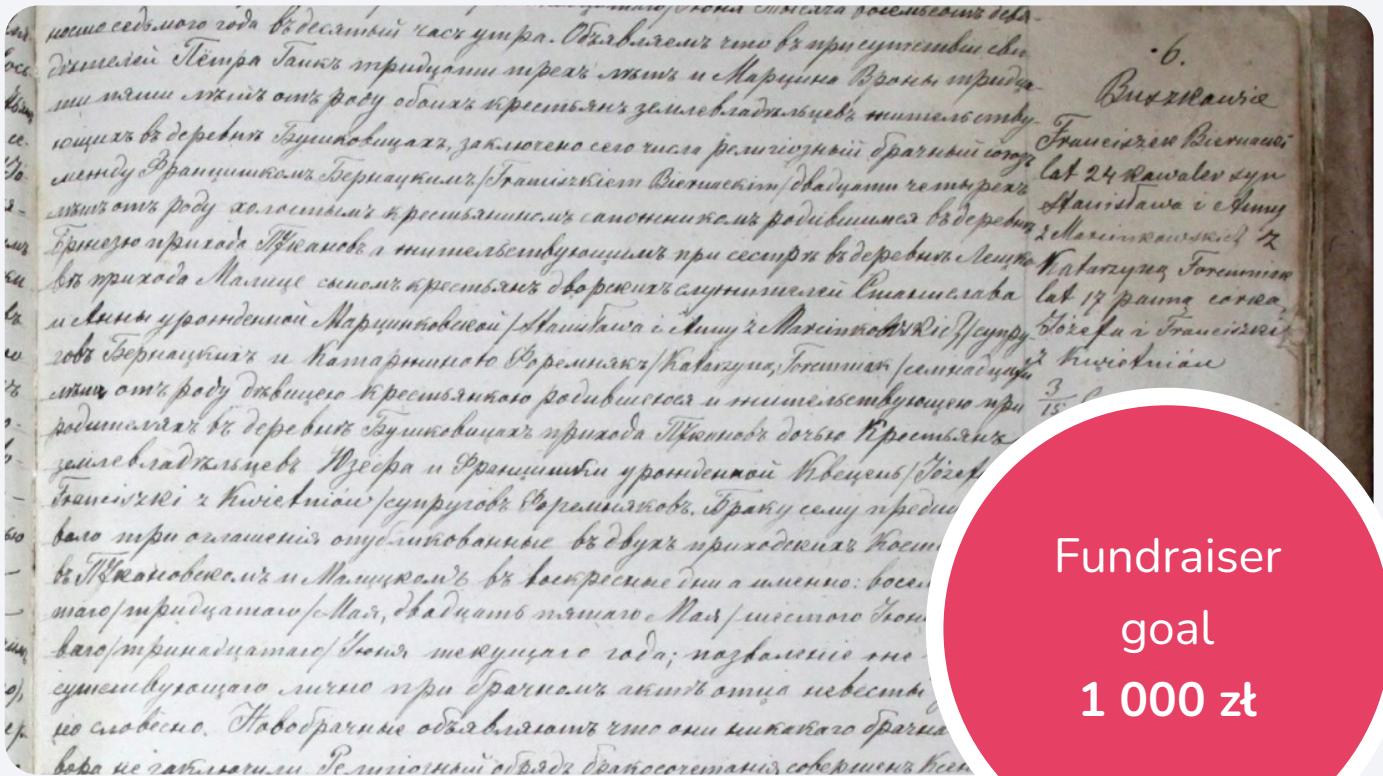 ностоседьмого года въ десятый часъ утра. Объявляемъ что въ присутствіи сви-
дѣтелей Пётра Гаикъ тридцати трехъ лѣтъ и Марцина Вроны тридца-
ти пяти лѣтъ отъ роду обоихъ крестьянъ землевладѣльцевъ жительству-
ющихъ въ деревнѣ Бушковицахъ, заключено сего числа религіозный брачный союзъ
между Францишкомъ Бернацкимъ /Franciszkiem Biernackim/ двадцати четырехъ
лѣтъ отъ роду холостымъ крестьяниномъ сапожникомъ родившимся въ деревнѣ
прихода Пѣкановъ а жительствующимъ при сестрѣ въ деревнѣ Лешко-
въ прихода Малице сыномъ крестьянъ дворскихъ служителей Станислава
и Анны урожденной Марцинковской /Stanisława i Anny z Marcinkowskich/ супру-
говъ Бернацкихъ и Катаржиною Форемнякъ /Katarzyną Foremniak/ семнадцати
лѣтъ отъ роду дѣвицею крестьянкою родившеюся и жительствующею при
родителяхъ въ деревнѣ Бушковицахъ прихода Пѣкановъ дочью Крестьянъ
землевладѣльцевъ Юзефа и Францишки урожденной Квецень /Józefa
Franciszki z Kwietniów/ супруговъ Форемняковъ. Браку сему предше
вало три оглашенія опубликованные въ двухъ приходскихъ Кост
въ Пѣкановскомъ и Малицкомъ въ воскресные дни а именно: восем
таго /тридцатаго/ Мая, двадцать пятаго Мая /шестого Іюня
ваго /тринадцатаго/ Іюня текущаго года; позволеніе
существующаго лично при брачномъ актѣ отца невесты
но словесно. Новобрачные объявляютъ что они никакого брачна
вора не заключили. Религіозный обрядъ бракосочетанія совершенъ Ксен
6.
Buszkowice
Franciszek Biernacki
lat 24 kawaler syn
Stanisława i Anny
z Marcinkowskich z
Katarzyną Foremniak
lat 17 panną córką
Józefa i Franciszki
z Kwietniów
3
15
Fundraiser
goal
1 000 zł